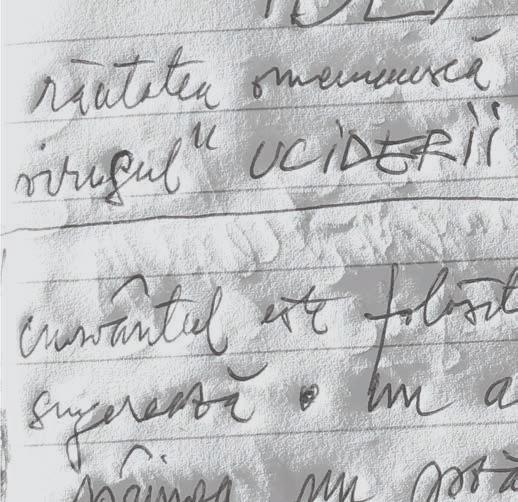 răutatea omenească
virusul" UCIDERII
cuvântul este folosit
sugerează un a
pâinea nu stă